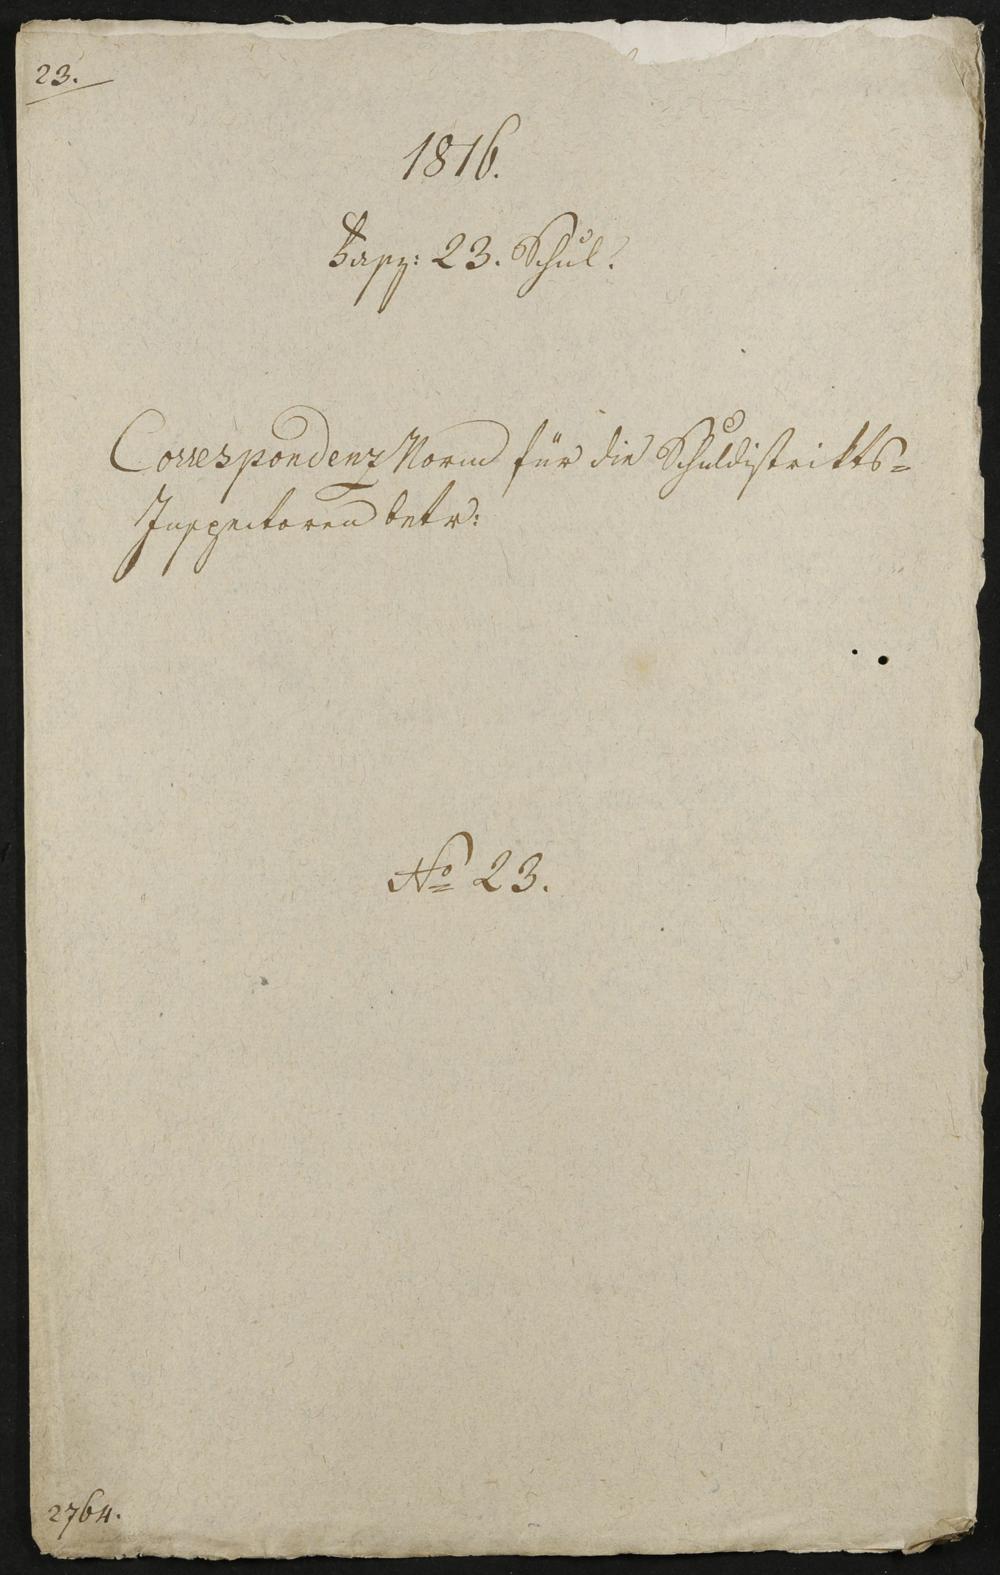 23.
1816.
23. Schul.
Correspondenz Norm für die Schuldistrikts=
Inspectoren betr:
No 23.
2764.